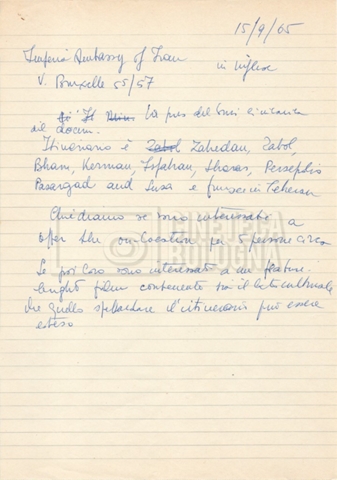 15/9/65
Imperial Embassy of Iran
in inglese
V. Bruxelle 55/57
la pres del
del docum.
Itinerario è Zahedan, Zabol,
Bham, Kerman, Isfahan, Shiraz, Persepolis
Pasargad and Susa e finire in Teheran
Chiediamo se sono interessati a
offer the per 5 persone circa
Se poi loro sono interessati a un feature-
lenght film contenente sia il lato culturale
che quello spettacolare l'itinerario può essere
esteso
CINETECA
BOLOGNA